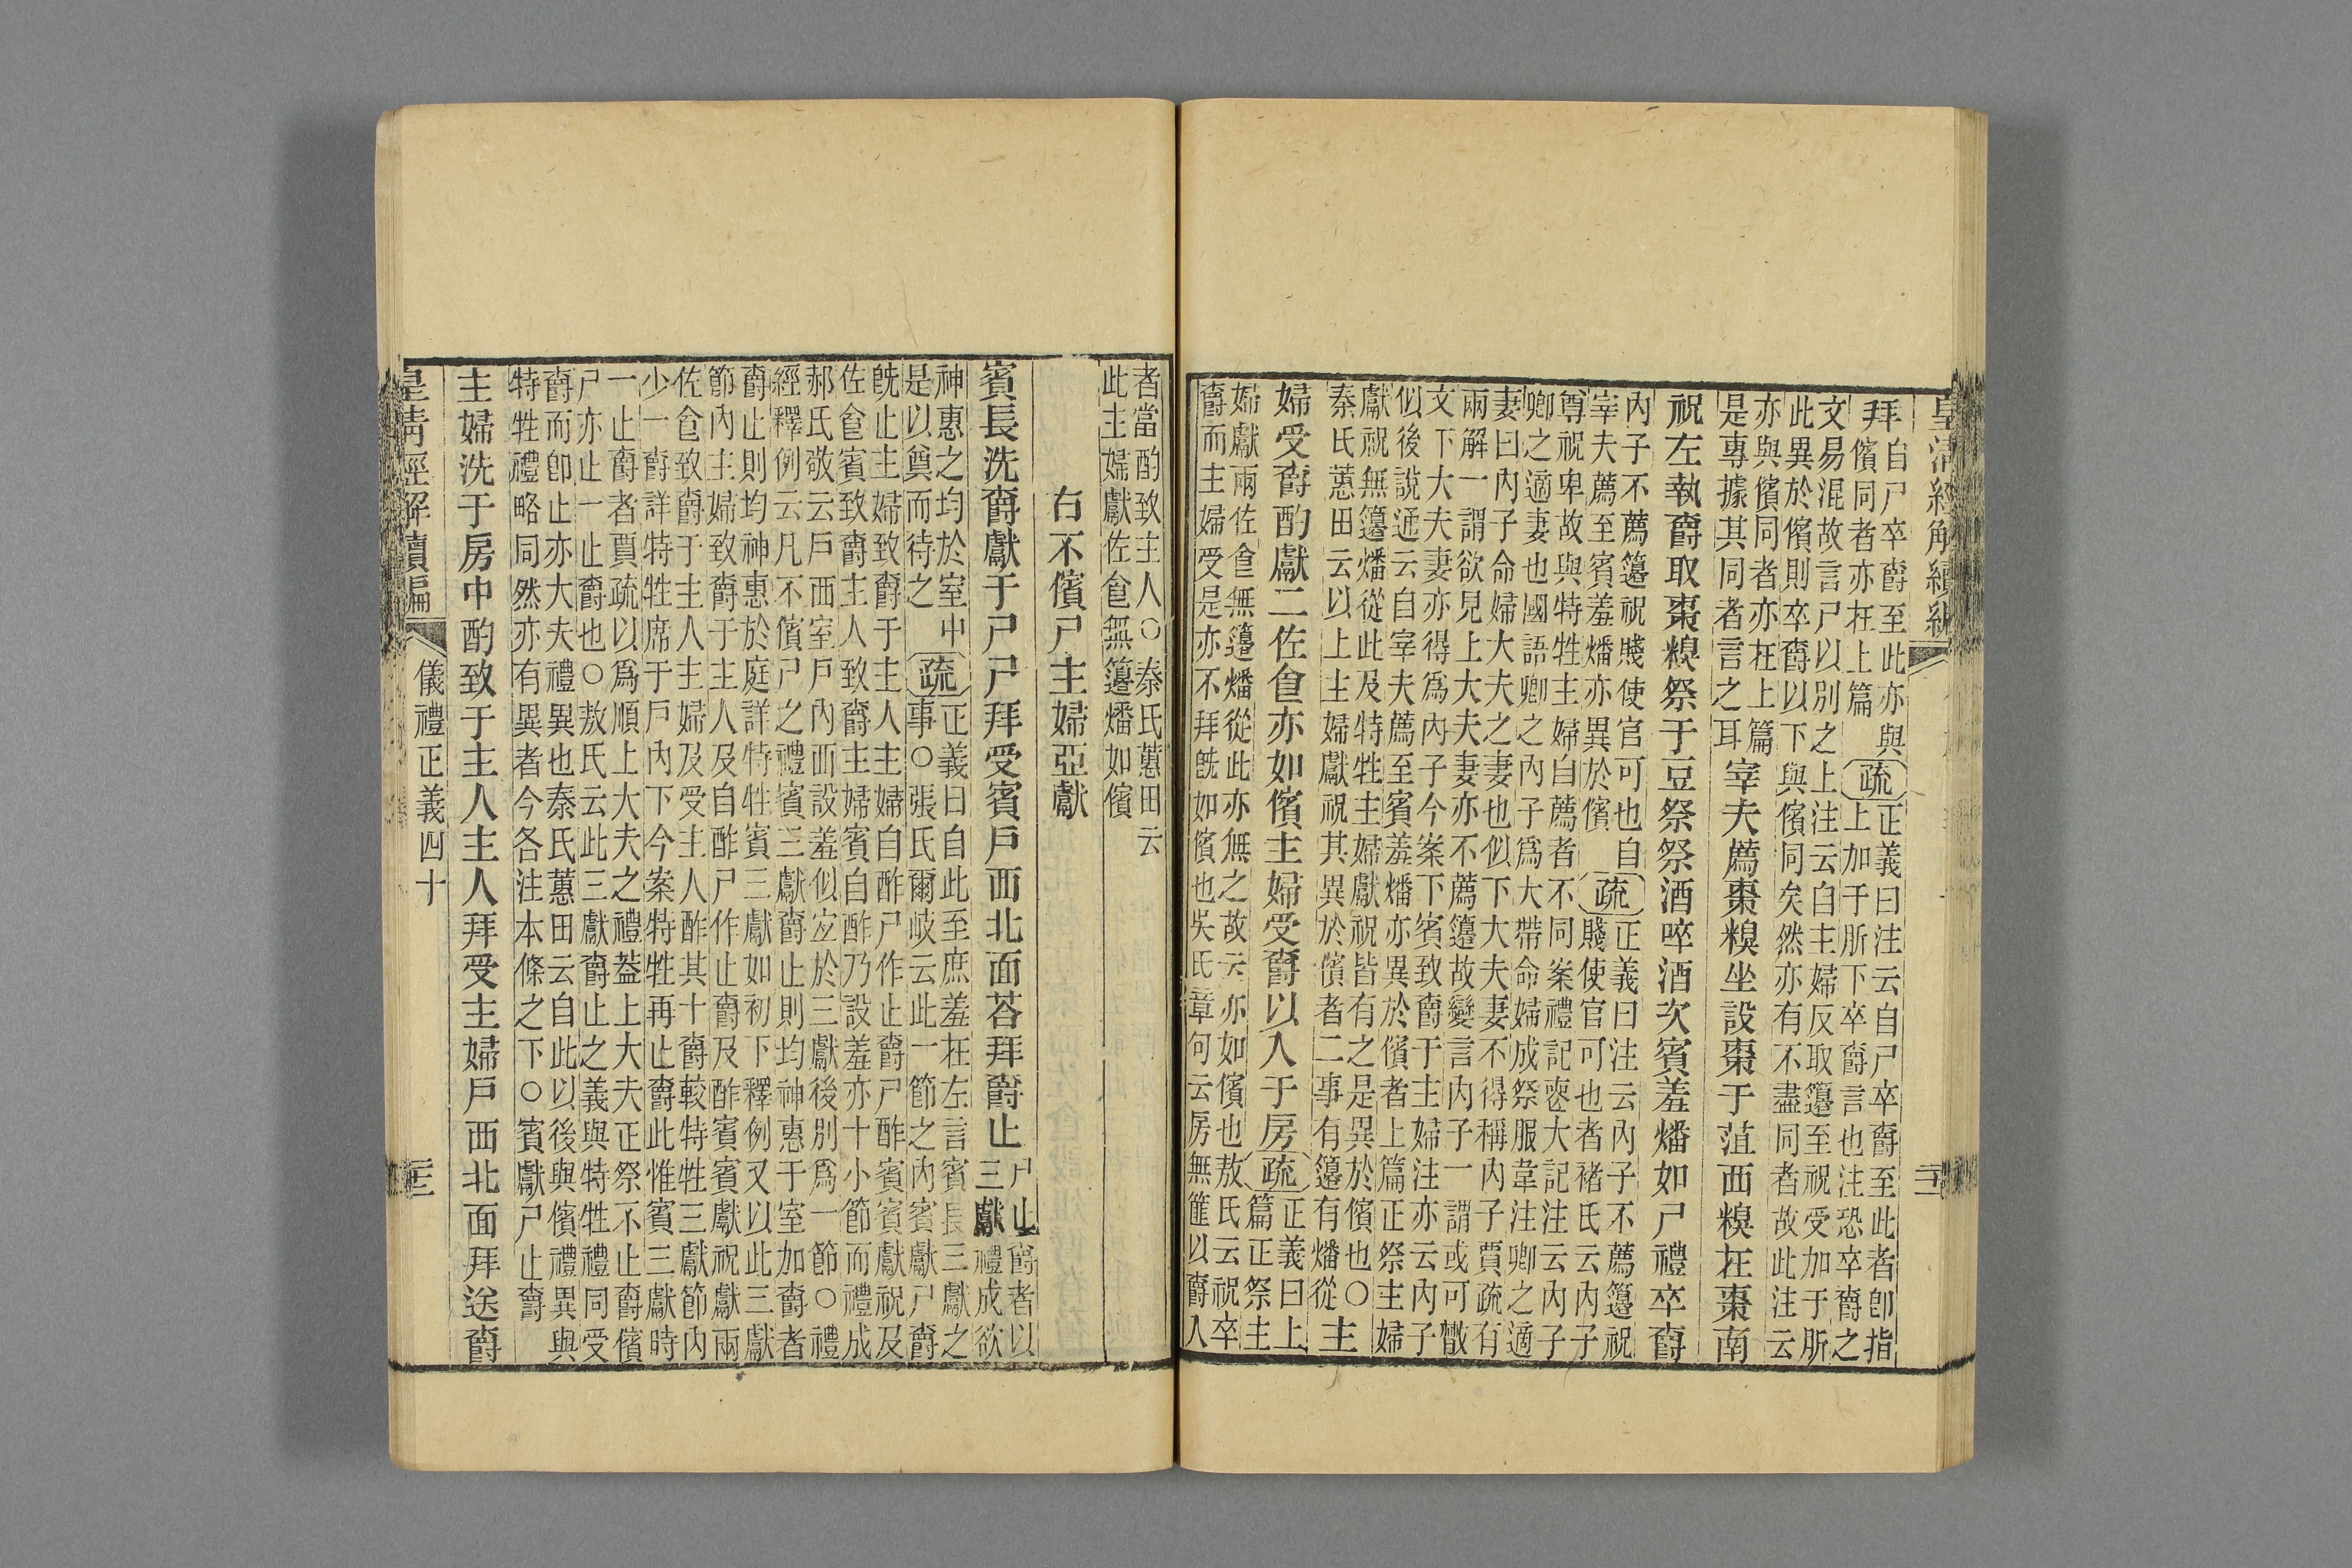 皇清經解續編
拜自尸卒爵至此亦與儐同者亦在上篇疏正義曰注云自尸卒爵至此者卽指上加于肵下卒爵言也注恐卒爵之
文易混故言尸以別之上注云自主婦反取籩至祝受加于肵此異於儐則卒爵以下與儐同矣然亦有不盡同者故此注云
亦與儐同者亦在上篇是專據其同者言之耳宰夫薦棗糗坐設棗于菹西糗在棗南
祝左執爵取棗糗祭于豆祭祭酒啐酒次賓羞燔如尸禮卒爵
內子不薦籩祝賤使官可也自宰夫薦至賓羞燔亦異於儐疏正義曰注云內子不薦籩祝賤使官可也者褚氏云內子
尊祝卑故與特牲主婦自薦者不同案禮記喪大記注云內子卿之適妻也國語卿之內子爲大帶命婦成祭服韋注卿之適
妻曰內子命婦大夫之妻也似下大夫妻不得稱內子賈疏有兩解一謂欲見上大夫妻亦不薦籩故變言內子一謂或可散
文下大夫妻亦得爲內子今案下賓致爵于主婦注亦云內子似後說通云自宰夫薦至賓羞燔亦異於儐者上篇正祭主婦
獻祝無籩燔從此及特牲主婦獻祝皆有之是異於儐也○秦氏蕙田云以上主婦獻祝其異於儐者二事有籩有燔從主
婦受爵酌獻二佐食亦如儐主婦受爵以入于房疏正義曰上篇正祭主
婦獻兩佐食無籩燔從此亦無之故云亦如儐也敖氏云祝卒爵而主婦受是亦不拜旣如儐也吳氏章句云房無篚以爵入
者當酌致主人○秦氏蕙田云此主婦獻佐食無籩燔如儐
右不儐尸主婦亞獻
賓長洗爵獻于尸尸拜受賓戶西北面荅拜爵止尸止爵者以三獻禮成欲
神惠之均於室中是以奠而待之疏正義曰自此至庶羞在左言賓長三獻之事○張氏爾岐云此一節之內賓獻尸爵
旣止主婦致爵于主人主婦自酢尸作止爵尸酢賓賓獻祝及佐食賓致爵主人致爵主婦賓自酢乃設羞亦十小節而禮成
郝氏敬云戶西室戶內西設羞似宜於三獻後別爲一節○禮經釋例云凡不儐尸之禮賓三獻爵止則均神惠于室加爵者
爵止則均神惠於庭詳特牲賓三獻如初下釋例又以此三獻節內主婦致爵于主人及自酢尸作止爵及酢賓賓獻祝獻兩
佐食致爵于主人主婦及受主人酢其十爵較特牲三獻節內少一爵詳特牲席于戶內下今案特牲再止爵此惟賓三獻時
一止爵者賈疏以爲順上大夫之禮葢上大夫正祭不止爵儐尸亦止一止爵也○敖氏云此三獻爵止之義與特牲禮同受
爵而卽止亦大夫禮異也秦氏蕙田云自此以後與儐禮異與特牲禮略同然亦有異者今各注本條之下○賓獻尸止爵
主婦洗于房中酌致于主人主人拜受主婦戶西北面拜送爵
皇清經解續編 儀禮正義四十